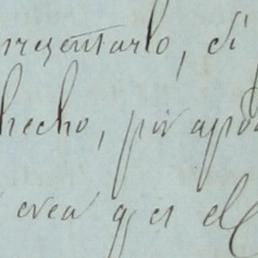 presentarlo, si
hecho, por apod
crea q. es el